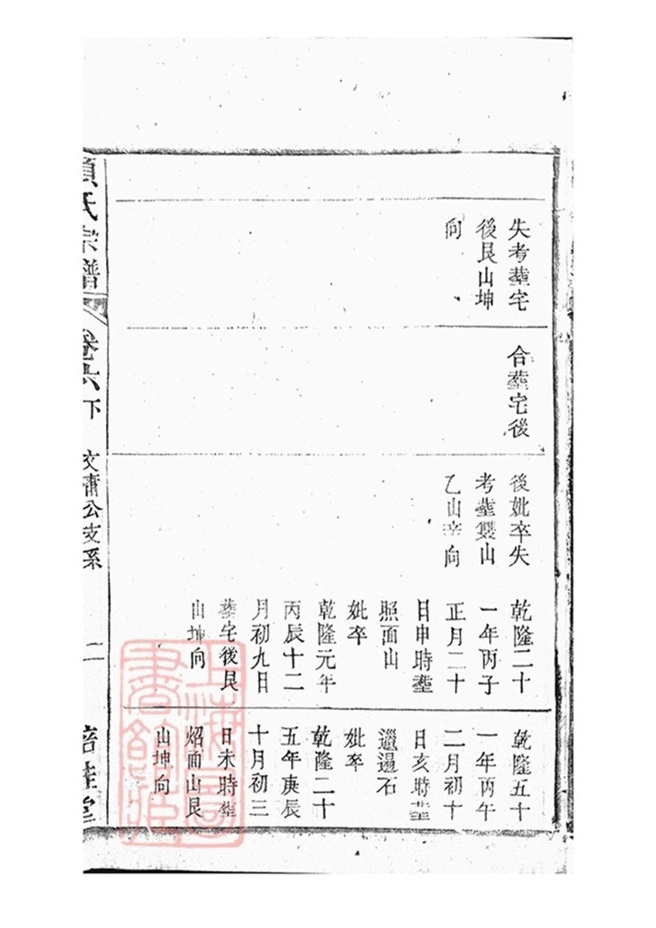 失考塟宅
後艮山坤
向
合塟宅後
後妣卒失
考塟雙山
乙山辛向
乾隆二十
一年丙子
正月二十
日申時塟
照面山
妣卒
乾隆元年
丙辰十二
月初九日
塟宅後艮
山坤向
乾隆五十
一年丙午
二月初十
日亥時塟
邋遢石
妣卒
乾隆二十
五年庚辰
十月初三
日未時塟
炤面山艮
山坤向
氏宗譜
卷六下
公支系
二
堂
上海圖書館藏